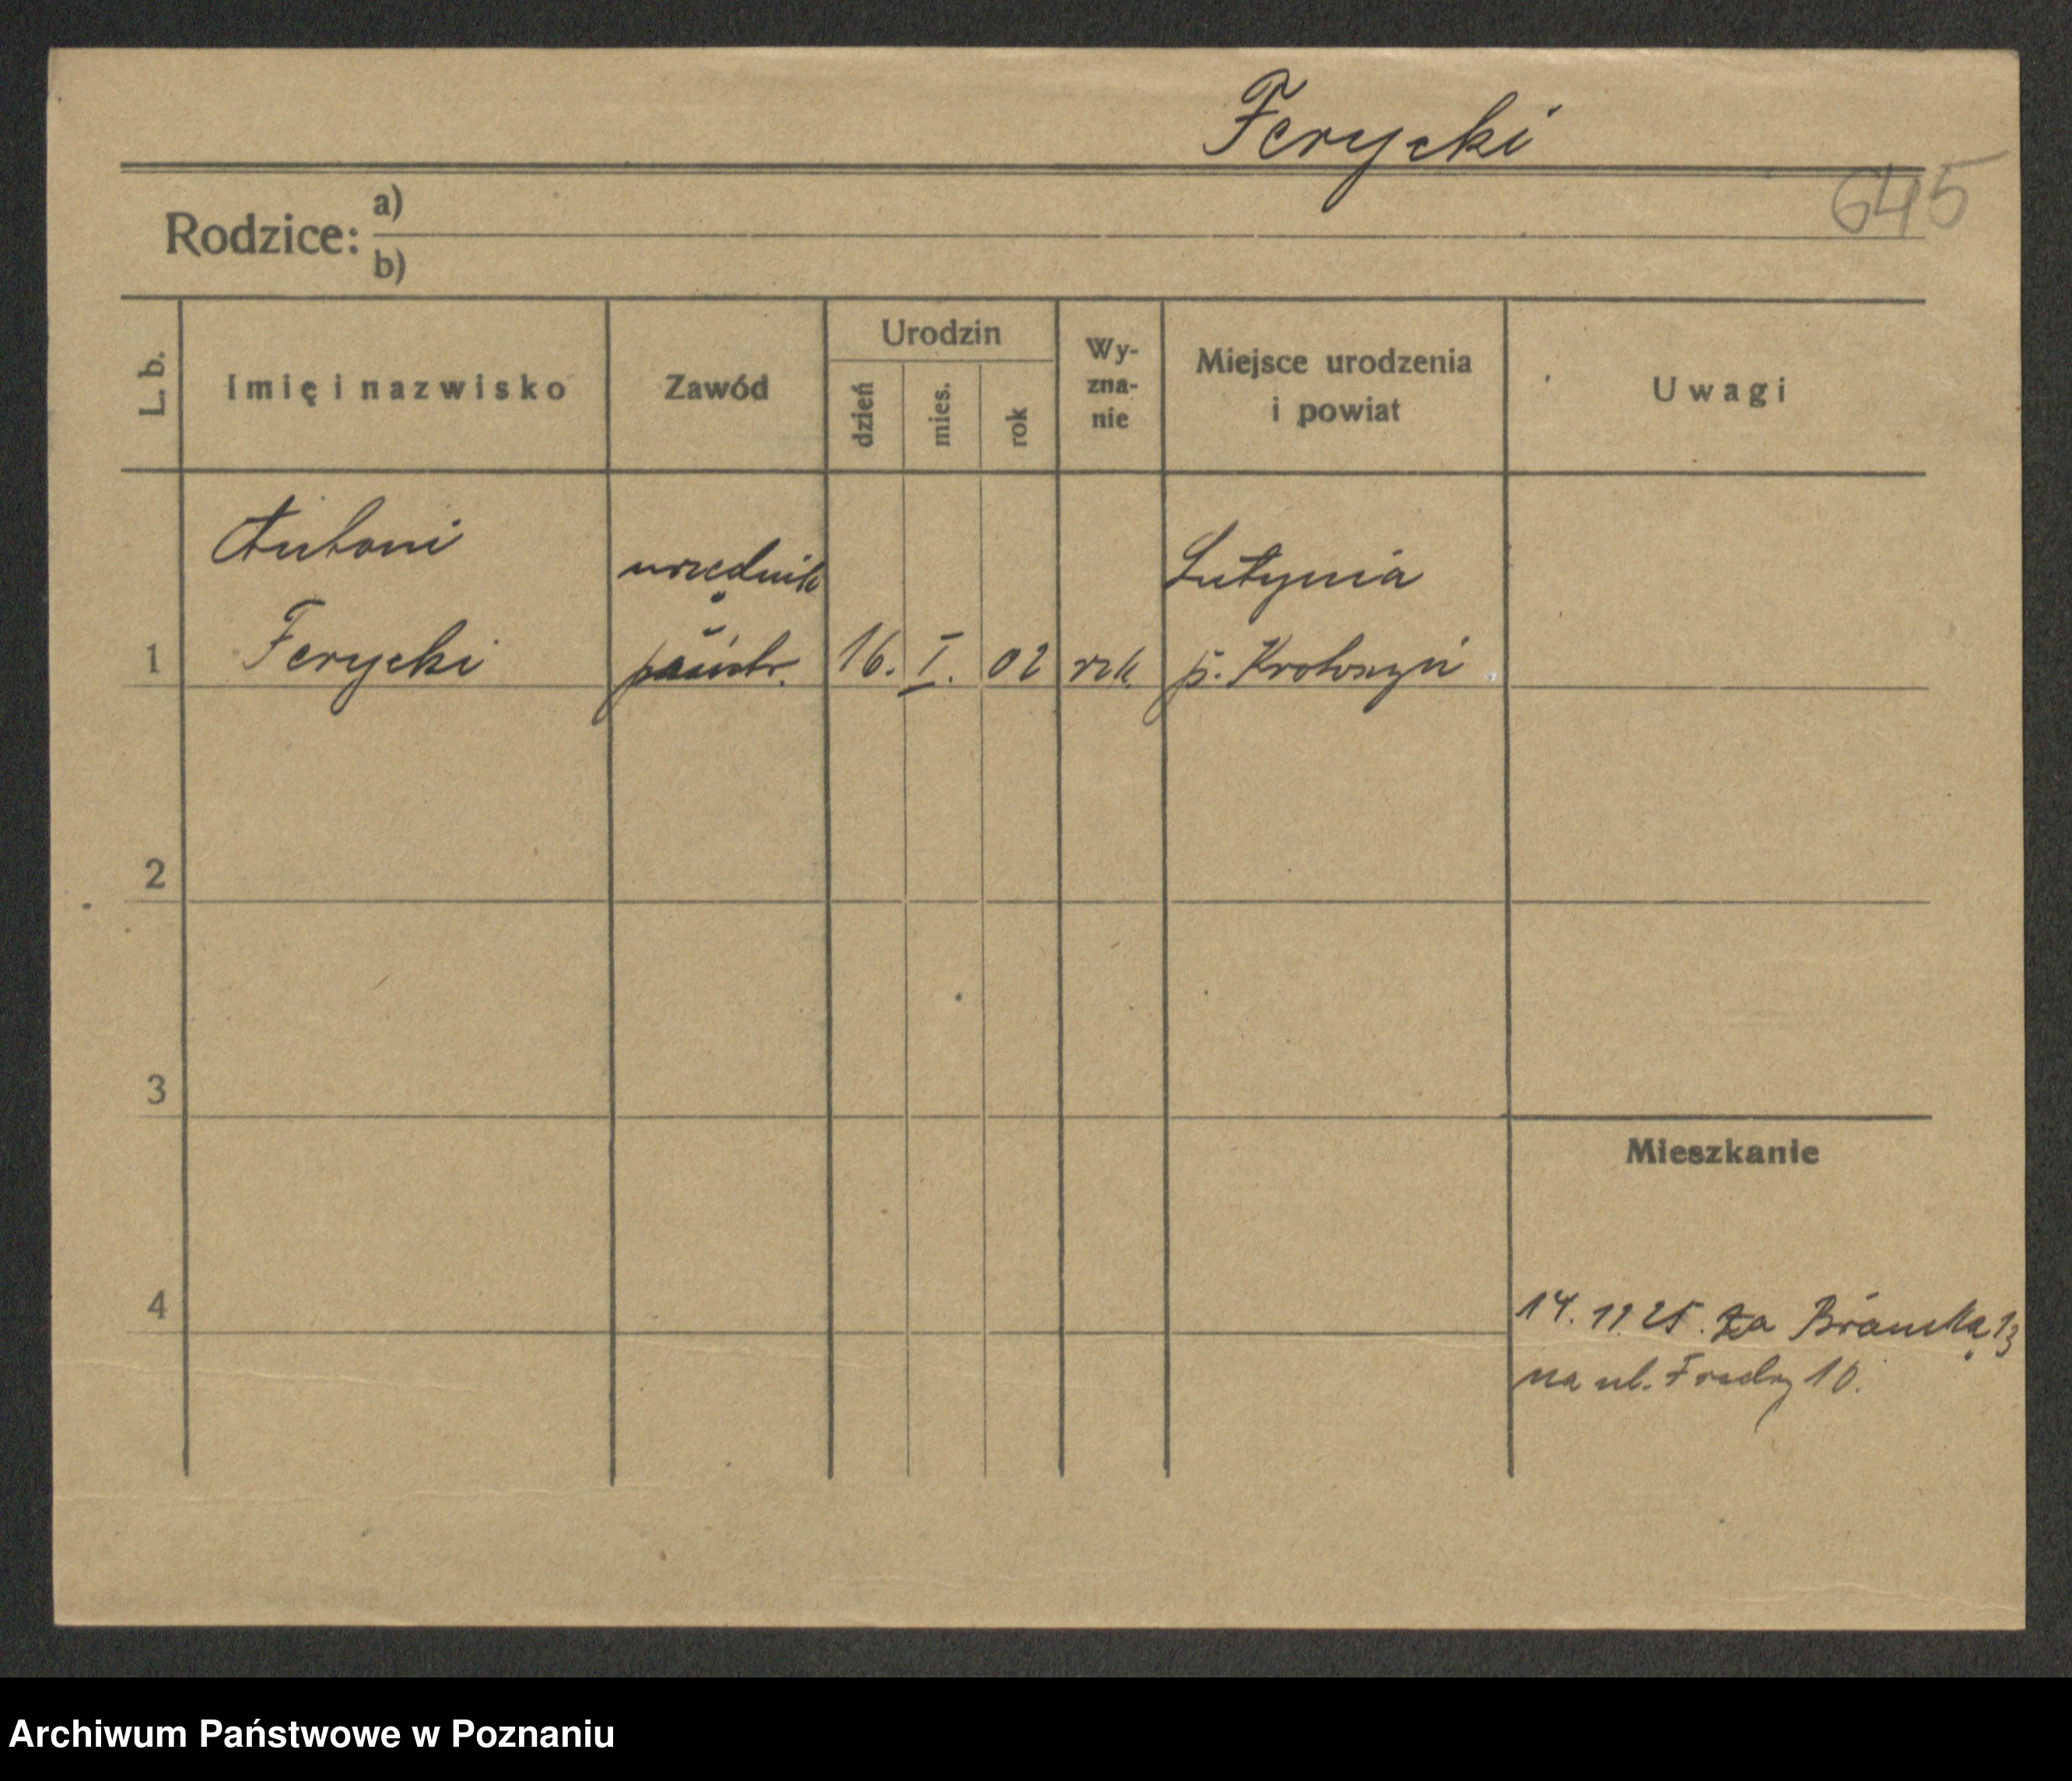 Ferycki
645
Rodzice: a)
b)
L. b. Imię i nazwisko Zawód Urodzin dzień mies. rok Wy-zna-nie Miejsce urodzenia i powiat Uwagi
Antoni urzędnik Lutynia
1 Ferycki państw. 16. I. 02 rzk. p. Krotoszyn
2
3
Mieszkanie
4
14. 11 25. Za Bramką 13
na ul. Fredry 10.
Archiwum Państwowe w Poznaniu